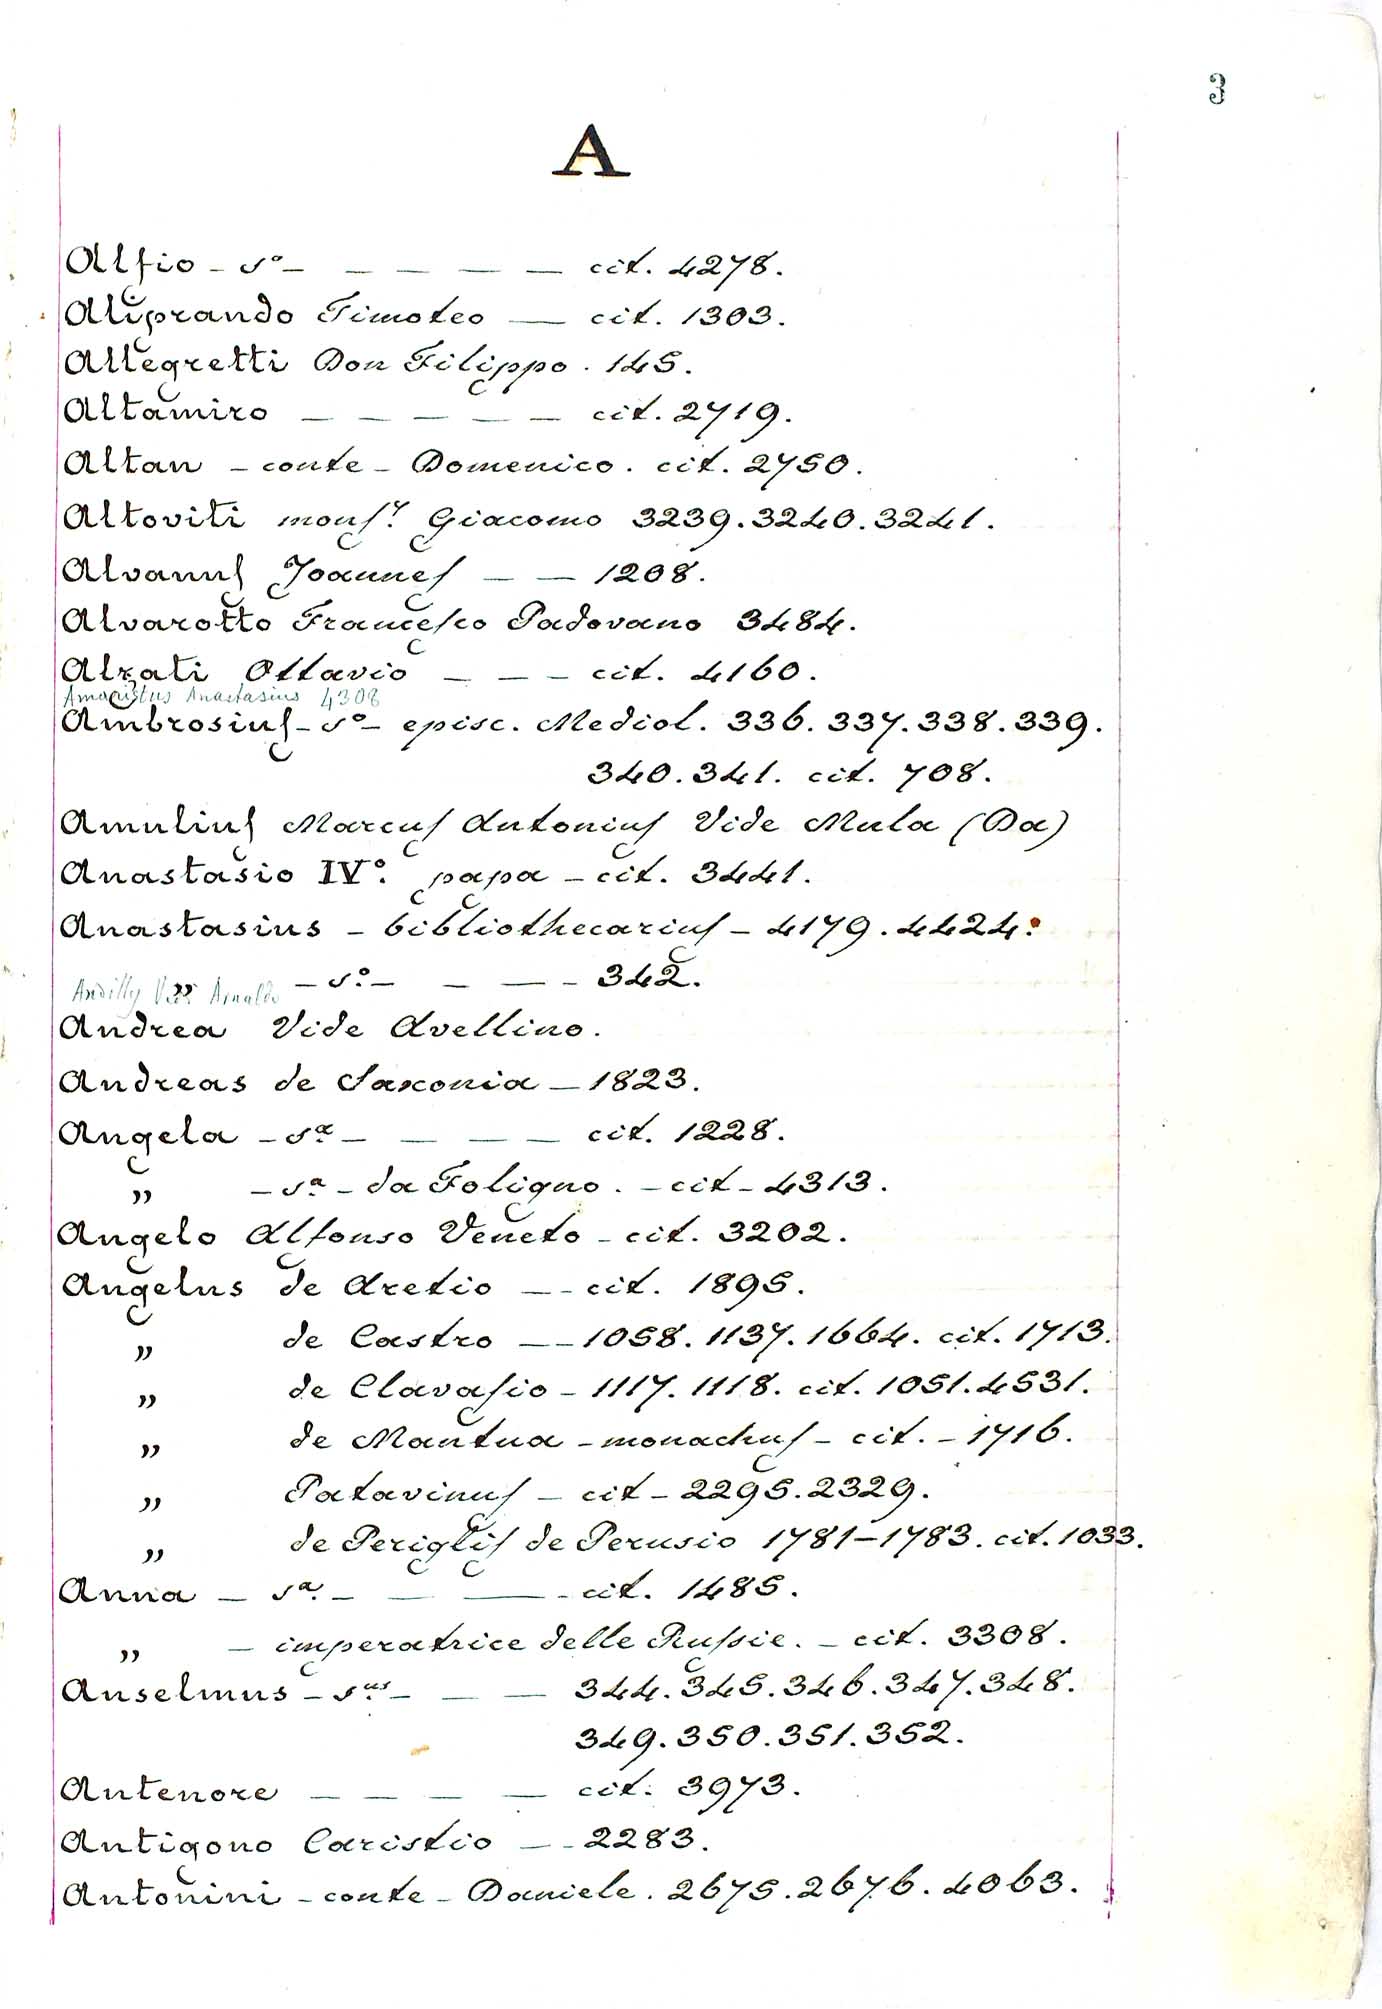 3
A
Alfio - sº - — — — — cit. 4278.
Aliprando Timoteo — cit. 1303.
Allegretti Don Filippo. 145.
Altamiro — — — — — cit. 2719.
Altan - conte - Domenico. cit. 2750.
Altoviti monsʳ. Giacomo 3239. 3240. 3241.
Alvanus Joannes — — 1208.
Alvarotto Francesco Padovano 3484.
Alzati Ottavio — — — cit. 4160.
Anastasius 4308
Ambrosius - sº - episc. Mediol. 336. 337. 338. 339.
340. 341. cit. 708.
Amulius Marcus Antonius Vide Mula (Da)
Anastasio IVº. papa - cit. 3441.
Anastasius - bibliothecarius - 4179. 4424.
„ - sº. - — — - 342.
Andilly Vedi Arnaldo
Andrea Vide Avellino.
Andreas de Saxonia - 1823.
Angela - sª. - — — — cit. 1228.
„ - sª. - da Foligno. - cit - 4313.
Angelo Alfonso Veneto - cit. 3202.
Angelus de Aretio — - cit. 1895.
„ de Castro — - 1058. 1137. 1664. cit. 1713.
„ de Clavasio - 1117. 1118. cit. 1051. 4531.
„ de Mantua - monachus - cit. - 1716.
„ Patavinus - cit - 2295. 2329.
„ de Periglis de Perusio 1781-1783. cit. 1033.
Anna - sª. - — — - cit. 1485.
„ - imperatrice delle Russie. - cit. 3308.
Anselmus - sᵘˢ - — — 344. 345. 346. 347. 348.
349. 350. 351. 352.
Antenore — — — — cit. 3973.
Antigono Caristio — - 2283.
Antonini - conte - Daniele. 2675. 2676. 4063.